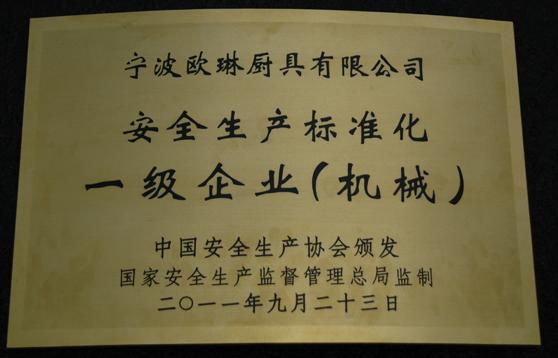 宁波欧琳厨具有限公司
安全生产标准化
一级企业(机械)
中国安全生产协会颁发
国家安全生产监督管理总局监制
二〇一一年九月二十三日